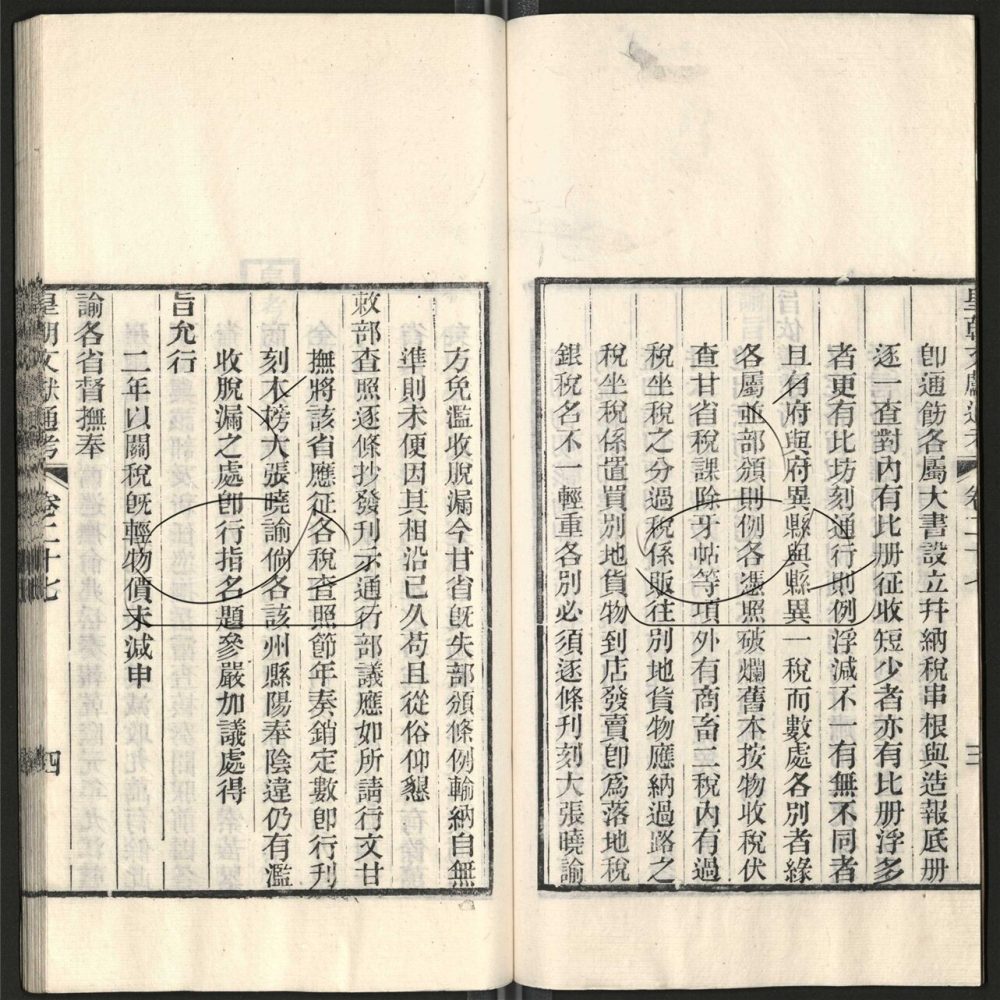 皇朝文獻通考 卷二十七 三
卽通飭各屬大書設立幷納稅串根與造報底册
逐一查對內有比册征收短少者亦有比册浮多
者更有比坊刻通行則例浮減不一有無不同者
且有府與府異縣與縣異一稅而數處各別者緣
各屬並部頒則例各憑照破爛舊本按物收稅伏
查甘省稅課除牙帖等項外有商畜二稅內有過
稅坐稅之分過稅係販往別地貨物應納過路之
稅坐稅係置買別地貨物到店發賣卽爲落地稅
銀稅名不一輕重各別必須逐條刊刻大張曉諭
方免濫收脫漏今甘省旣失部頒條例輸納自無
準則未便因其相沿已久苟且從俗仰懇
敕部查照逐條抄發刊示通行部議應如所請行文甘
撫將該省應征各稅查照節年奏銷定數卽行刊
刻木榜大張曉諭倘各該州縣陽奉陰違仍有濫
收脫漏之處卽行指名題參嚴加議處得
旨允行
二年以關稅旣輕物價未減申
諭各省督撫奉
皇朝文獻通考 卷二十七 四